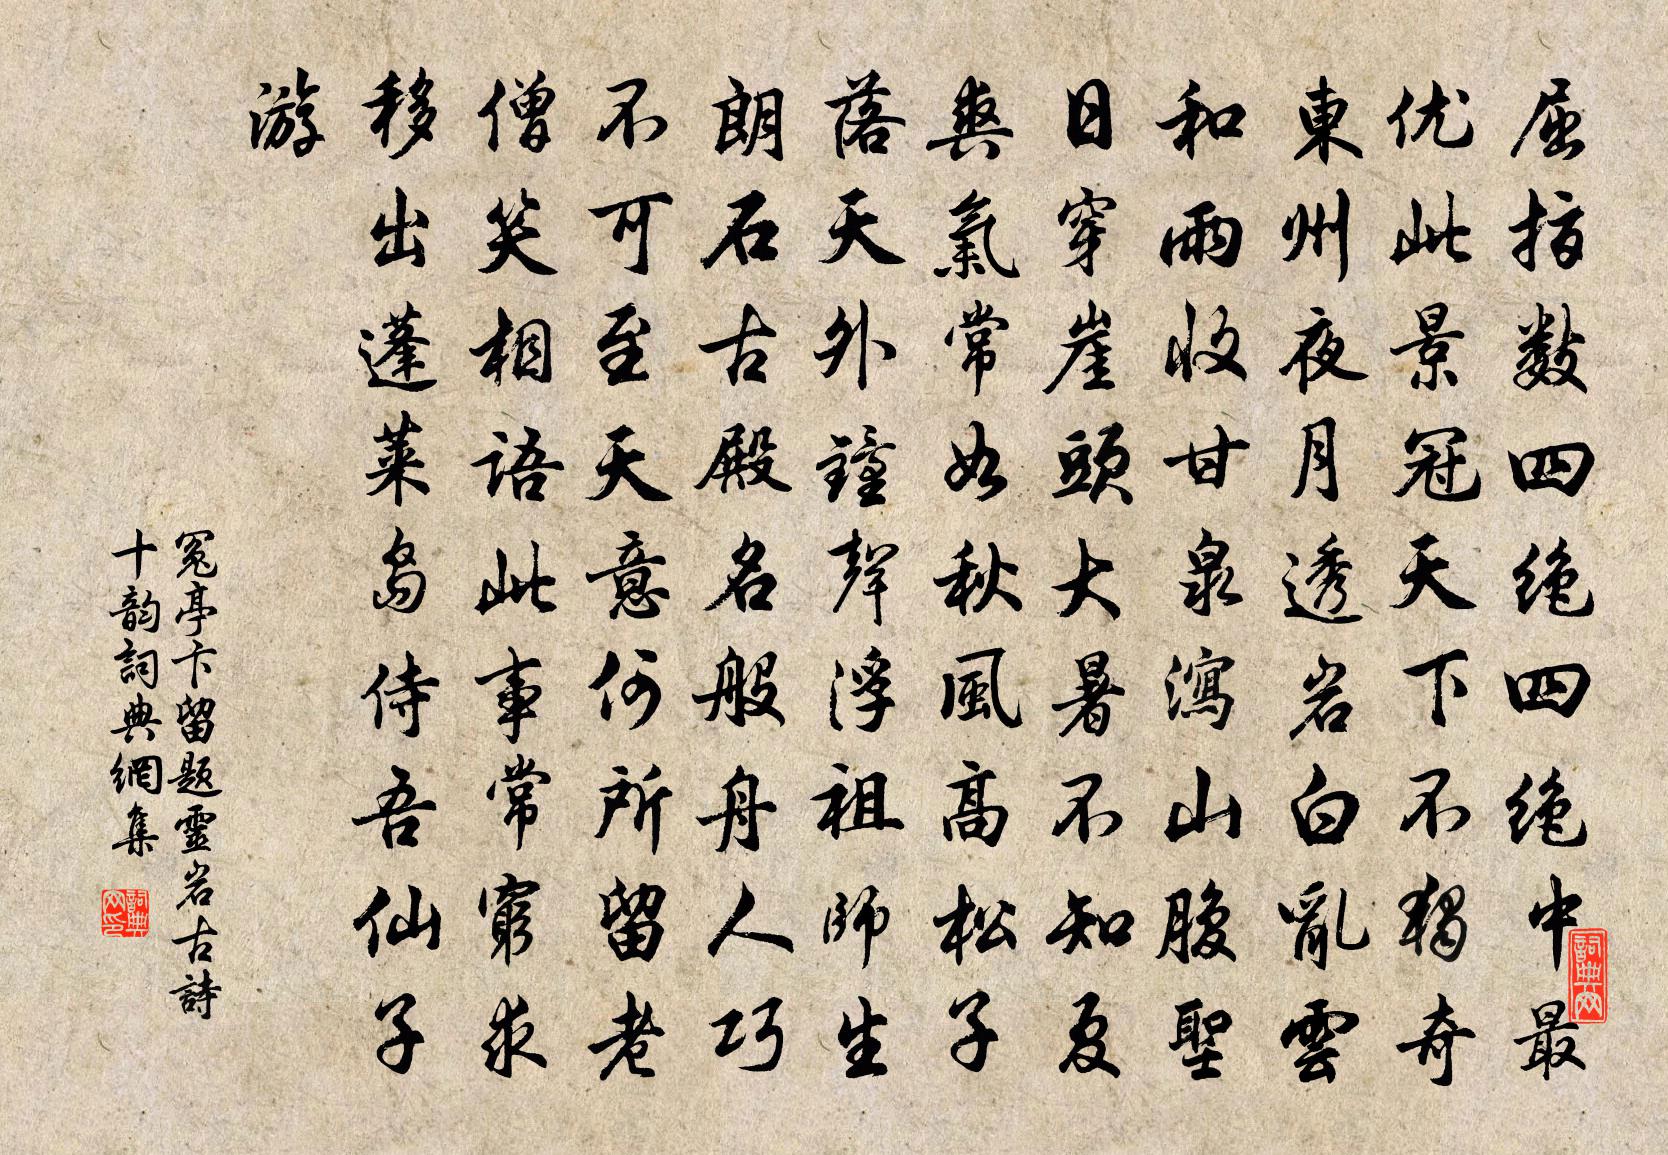 屈指数四绝四绝中最
优此景冠天下不独奇
東州夜月透岩白亂雲
和雨收甘泉瀉山腹聖
日穿崖頭大暑不知夏
爽氣常如秋風高松子
落天外鐘聲浮祖師生
朗石古殿名般舟人巧
不可至天意何所留老
僧笑相語此事常窮求
移出蓬莱岛侍吾仙子
游
冤亭卞留题靈岩古詩
十韵詞典網集
詞典网
詞典网印